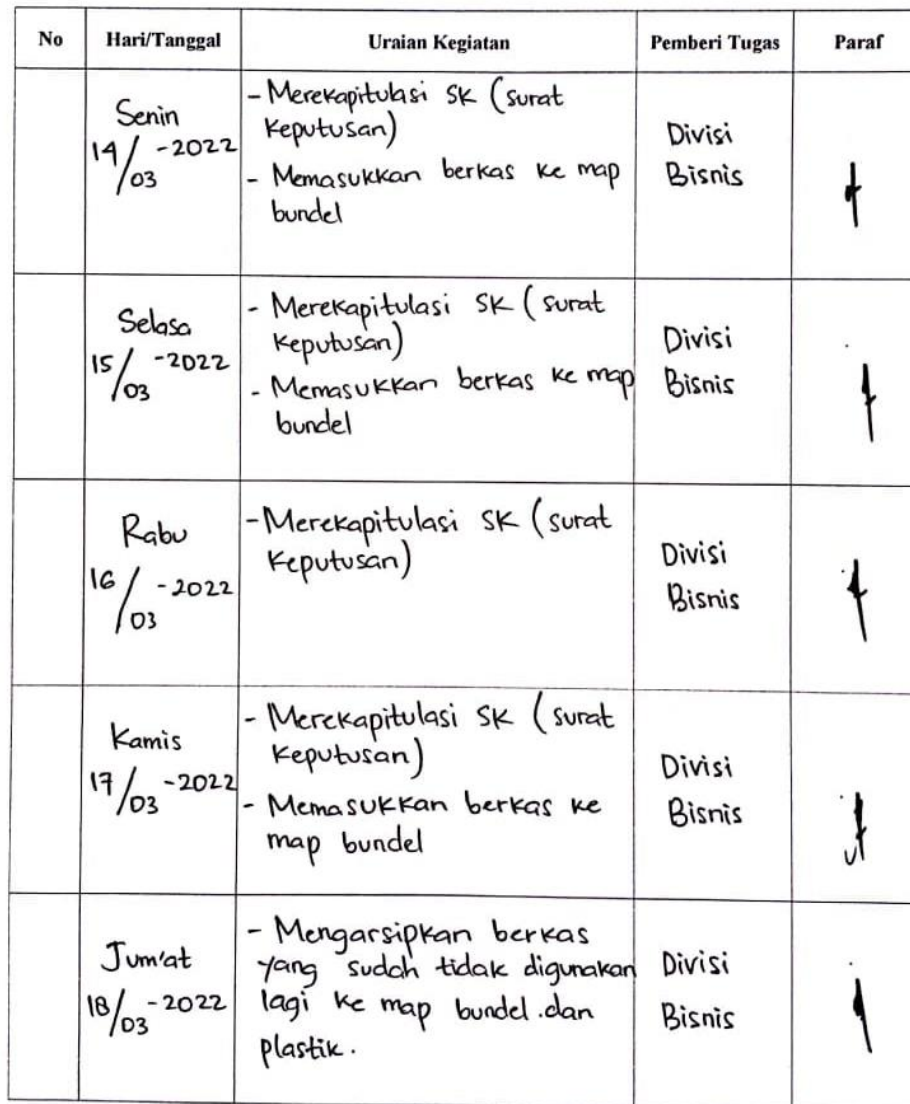 No Hari/Tanggal Uraian Kegiatan Pemberi Tugas Paraf
Senin
14/03-2022
- Merekapitulasi SK (surat
keputusan)
- Memasukkan berkas ke map
bundel
Divisi
Bisnis
Selasa
15/03-2022
- Merekapitulasi SK (surat
keputusan)
- Memasukkan berkas ke map
bundel
Divisi
Bisnis
Rabu
16/03-2022
- Merekapitulasi SK (surat
keputusan)
Divisi
Bisnis
Kamis
17/03-2022
- Merekapitulasi SK (surat
keputusan)
- Memasukkan berkas ke
map bundel
Divisi
Bisnis
Jum'at
18/03-2022
- Mengarsipkan berkas
yang sudah tidak digunakan
lagi ke map bundel.dan
plastik.
Divisi
Bisnis